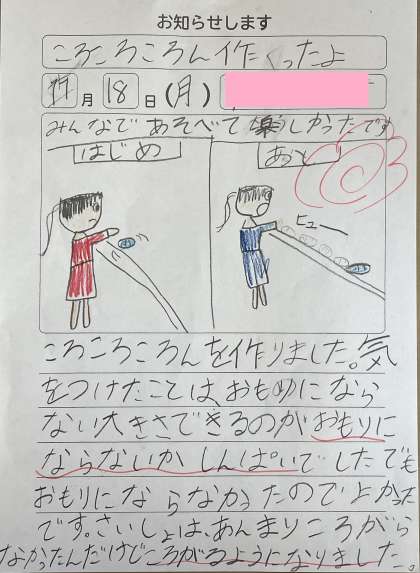 お知らせします
ころころころん作ったよ
月 18 日 (月)
みんなであそべて楽しかったです
はじめ
あと
ヒュー
ころころころんを作りました。気
をつけたことは、おもりになら
ない大きさでできるのがおもりに
ならないかしんぱいでしたでも
おもりにならなかったのでよかった
です。さいしょは、あんまりころがら
なかったんだけどころがるようになりました。